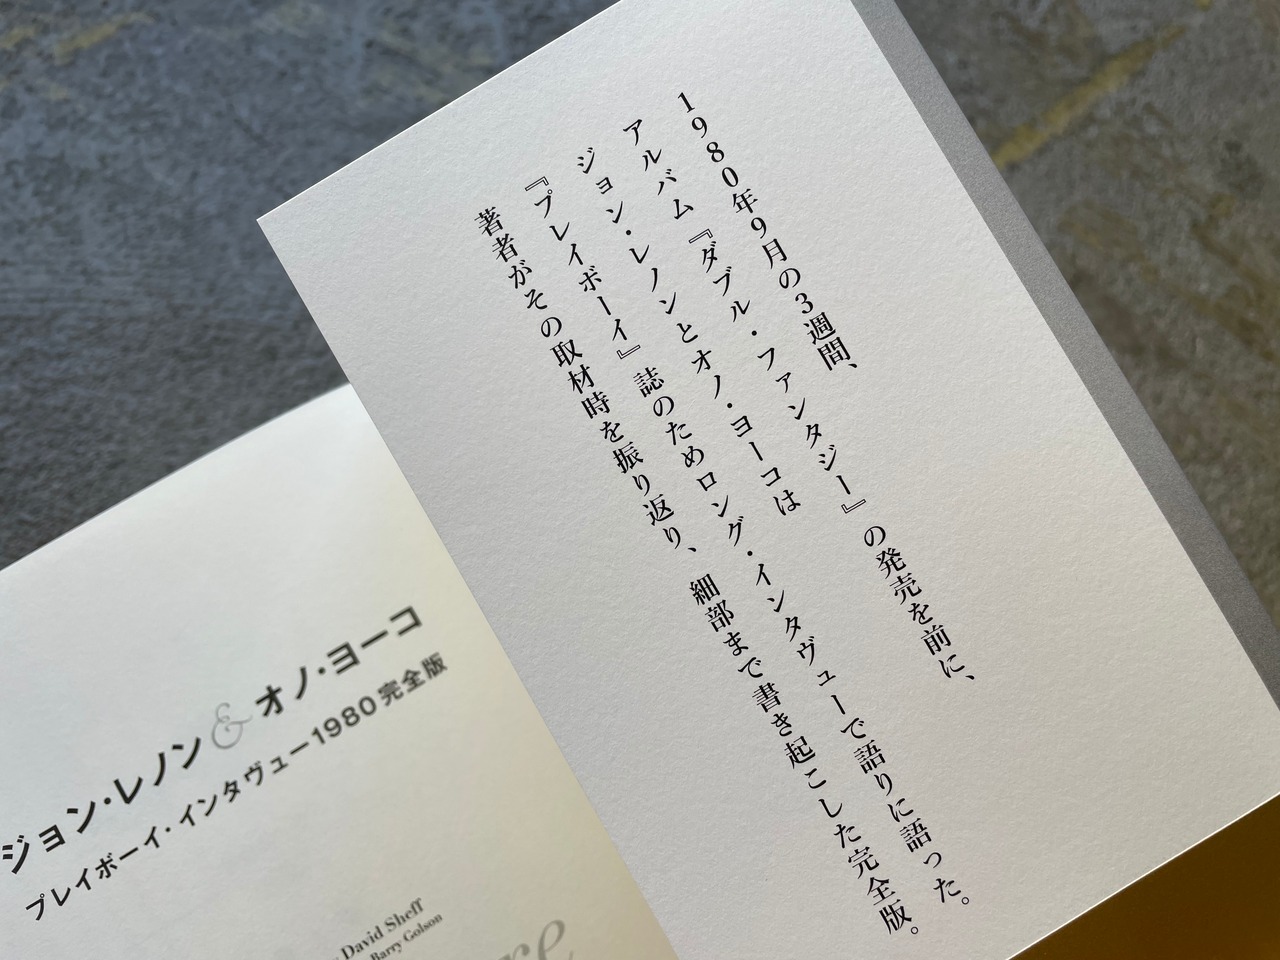 1980年9月の3週間、
アルバム『ダブル・ファンタジー』の発売を前に、
ジョン・レノンとオノ・ヨーコは
『プレイボーイ』誌のためロング・インタヴューで語りに語った。
著者がその取材時を振り返り、細部まで書き起こした完全版。
ジョン・レノン&オノ・ヨーコ
プレイボーイ・インタヴュー1980完全版
David Sheff
Barry Golson